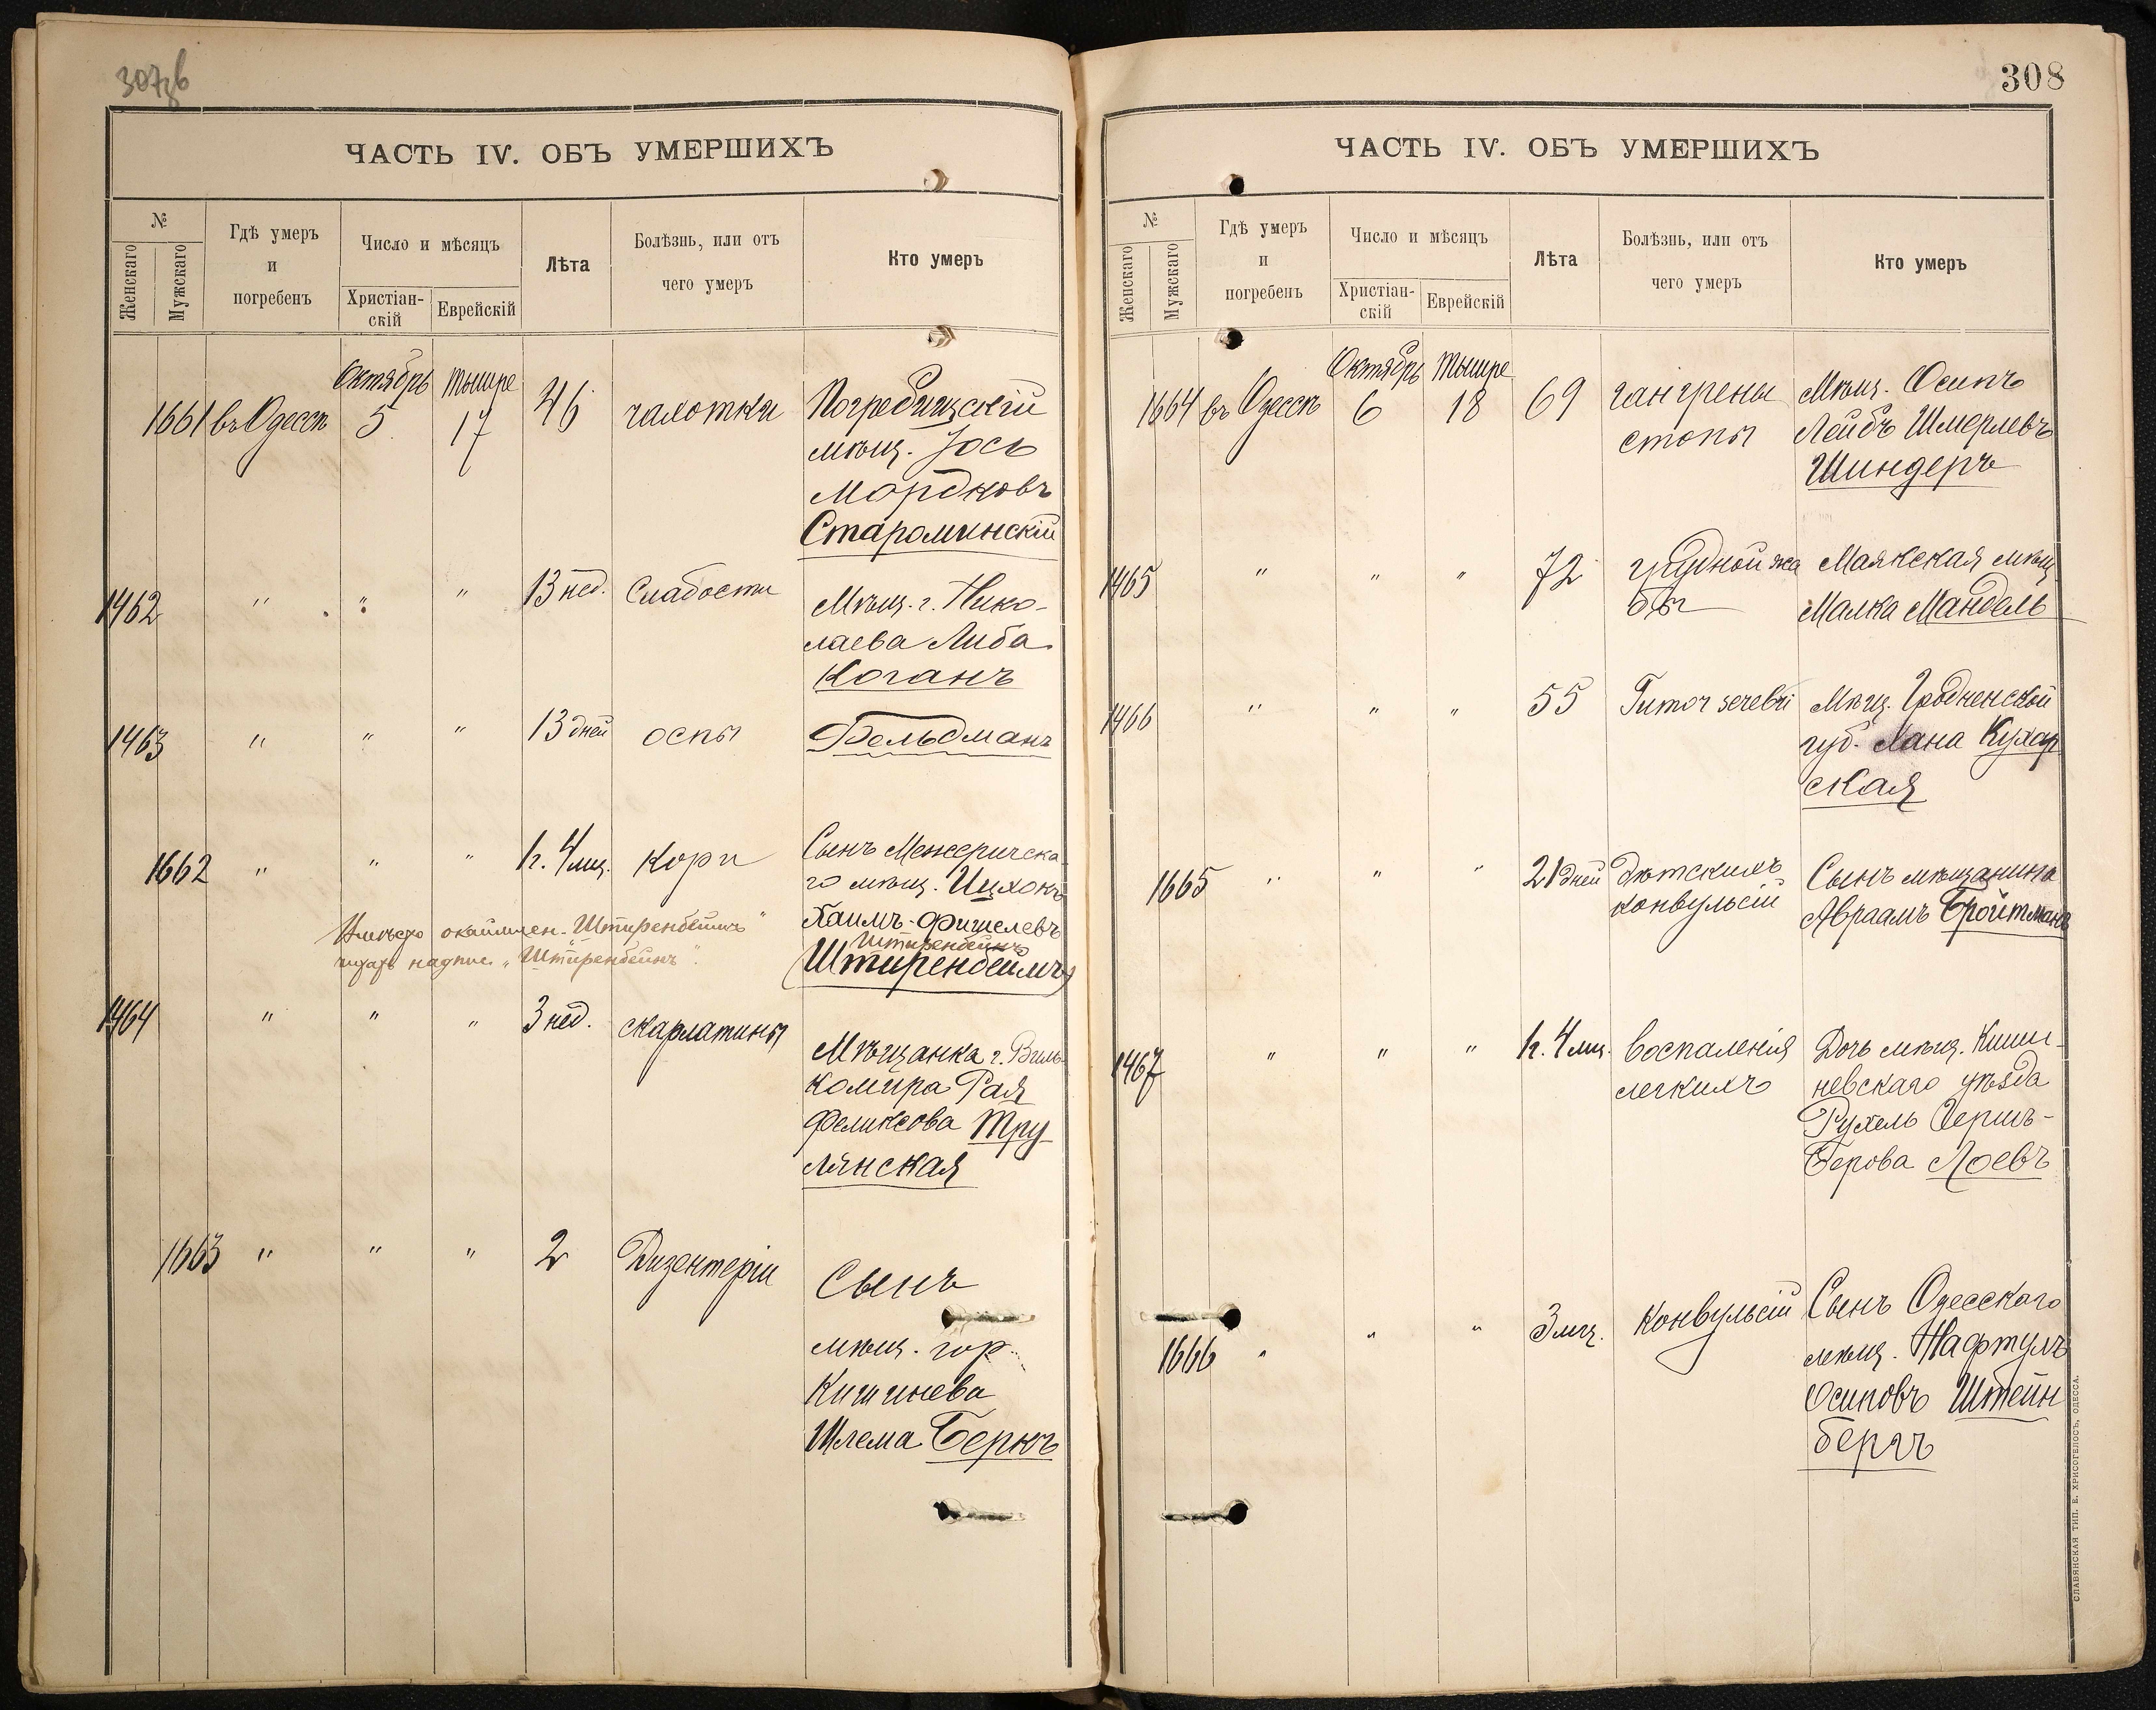 307 зв
ЧАСТЬ IV. ОБЪ УМЕРШИХЪ
№
Женскаго
Мужскаго
Гдѣ умеръ
и
погребенъ
Число и мѣсяцъ
Христіан-
скій
Еврейскій
Лѣта
Болѣзнь, или отъ
чего умеръ
Кто умеръ
Октябрь Тишре
1661 въ Одессѣ 5 17 46 чахотки Погребищскій
мѣщ. Іось
Мордковъ
Староминскій
1462 " " " 13 нед. Слабости Мѣщ. г. Нико-
лаева Либа
Коганъ
1463 " " " 13 дней оспы Фельдманъ
1662 " " " 1 г. 4 мц. Кори Сынъ Межеричска-
го мѣщ. Ицхокъ
Хаимъ-Фишелевъ
Штиренбейнъ
(Штиренбеймъ)
"Штиренбеймъ"
надпис. "Штиренбейнъ".
1464 " " " 3 нед. скарлатины Мѣщанка г. Виль-
комира Рая
Феликсова Тру-
лянская
1663 " " " 2 Дизентеріи Сынъ
мѣщ. гор.
Кишинева
Шлема Беркъ
308
ЧАСТЬ IV. ОБЪ УМЕРШИХЪ
№
Женскаго
Мужскаго
Гдѣ умеръ
и
погребенъ
Число и мѣсяцъ
Христіан-
скій
Еврейскій
Лѣта
Болѣзнь, или отъ
чего умеръ
Кто умеръ
Октябрь Тишре
1664 въ Одессѣ 6 18 69 гангрены стопы Мѣщ. Осипъ
Лейбъ Шмерлевъ
Шиндеръ
1465 " " " 72 грудной жа
бы Маякская мѣщ
Малка Мандель
1466 " " " 55 Tumor cerebri Мѣщ. Гродненской
губ. Хана Кухар
ская
1665 " " " 21 дней Дѣтскихъ
конвульсій Сынъ мѣщанина
Авраамъ Бройтманъ
1467 " " " 1 г. 4 мц. воспаленія
легкихъ Дочь мѣщ. Киши-
невскаго уѣзда
Рухель Гершъ-
Берова Лоевъ
1666 " " " 3 мц. Конвульсій Сынъ Одесскаго
мѣщ. Нафтулъ
Осиповъ Штейн
бергъ
СЛАВЯНСКАЯ ТИП. Е. ХРИСОГЕЛОСЪ, ОДЕССА.